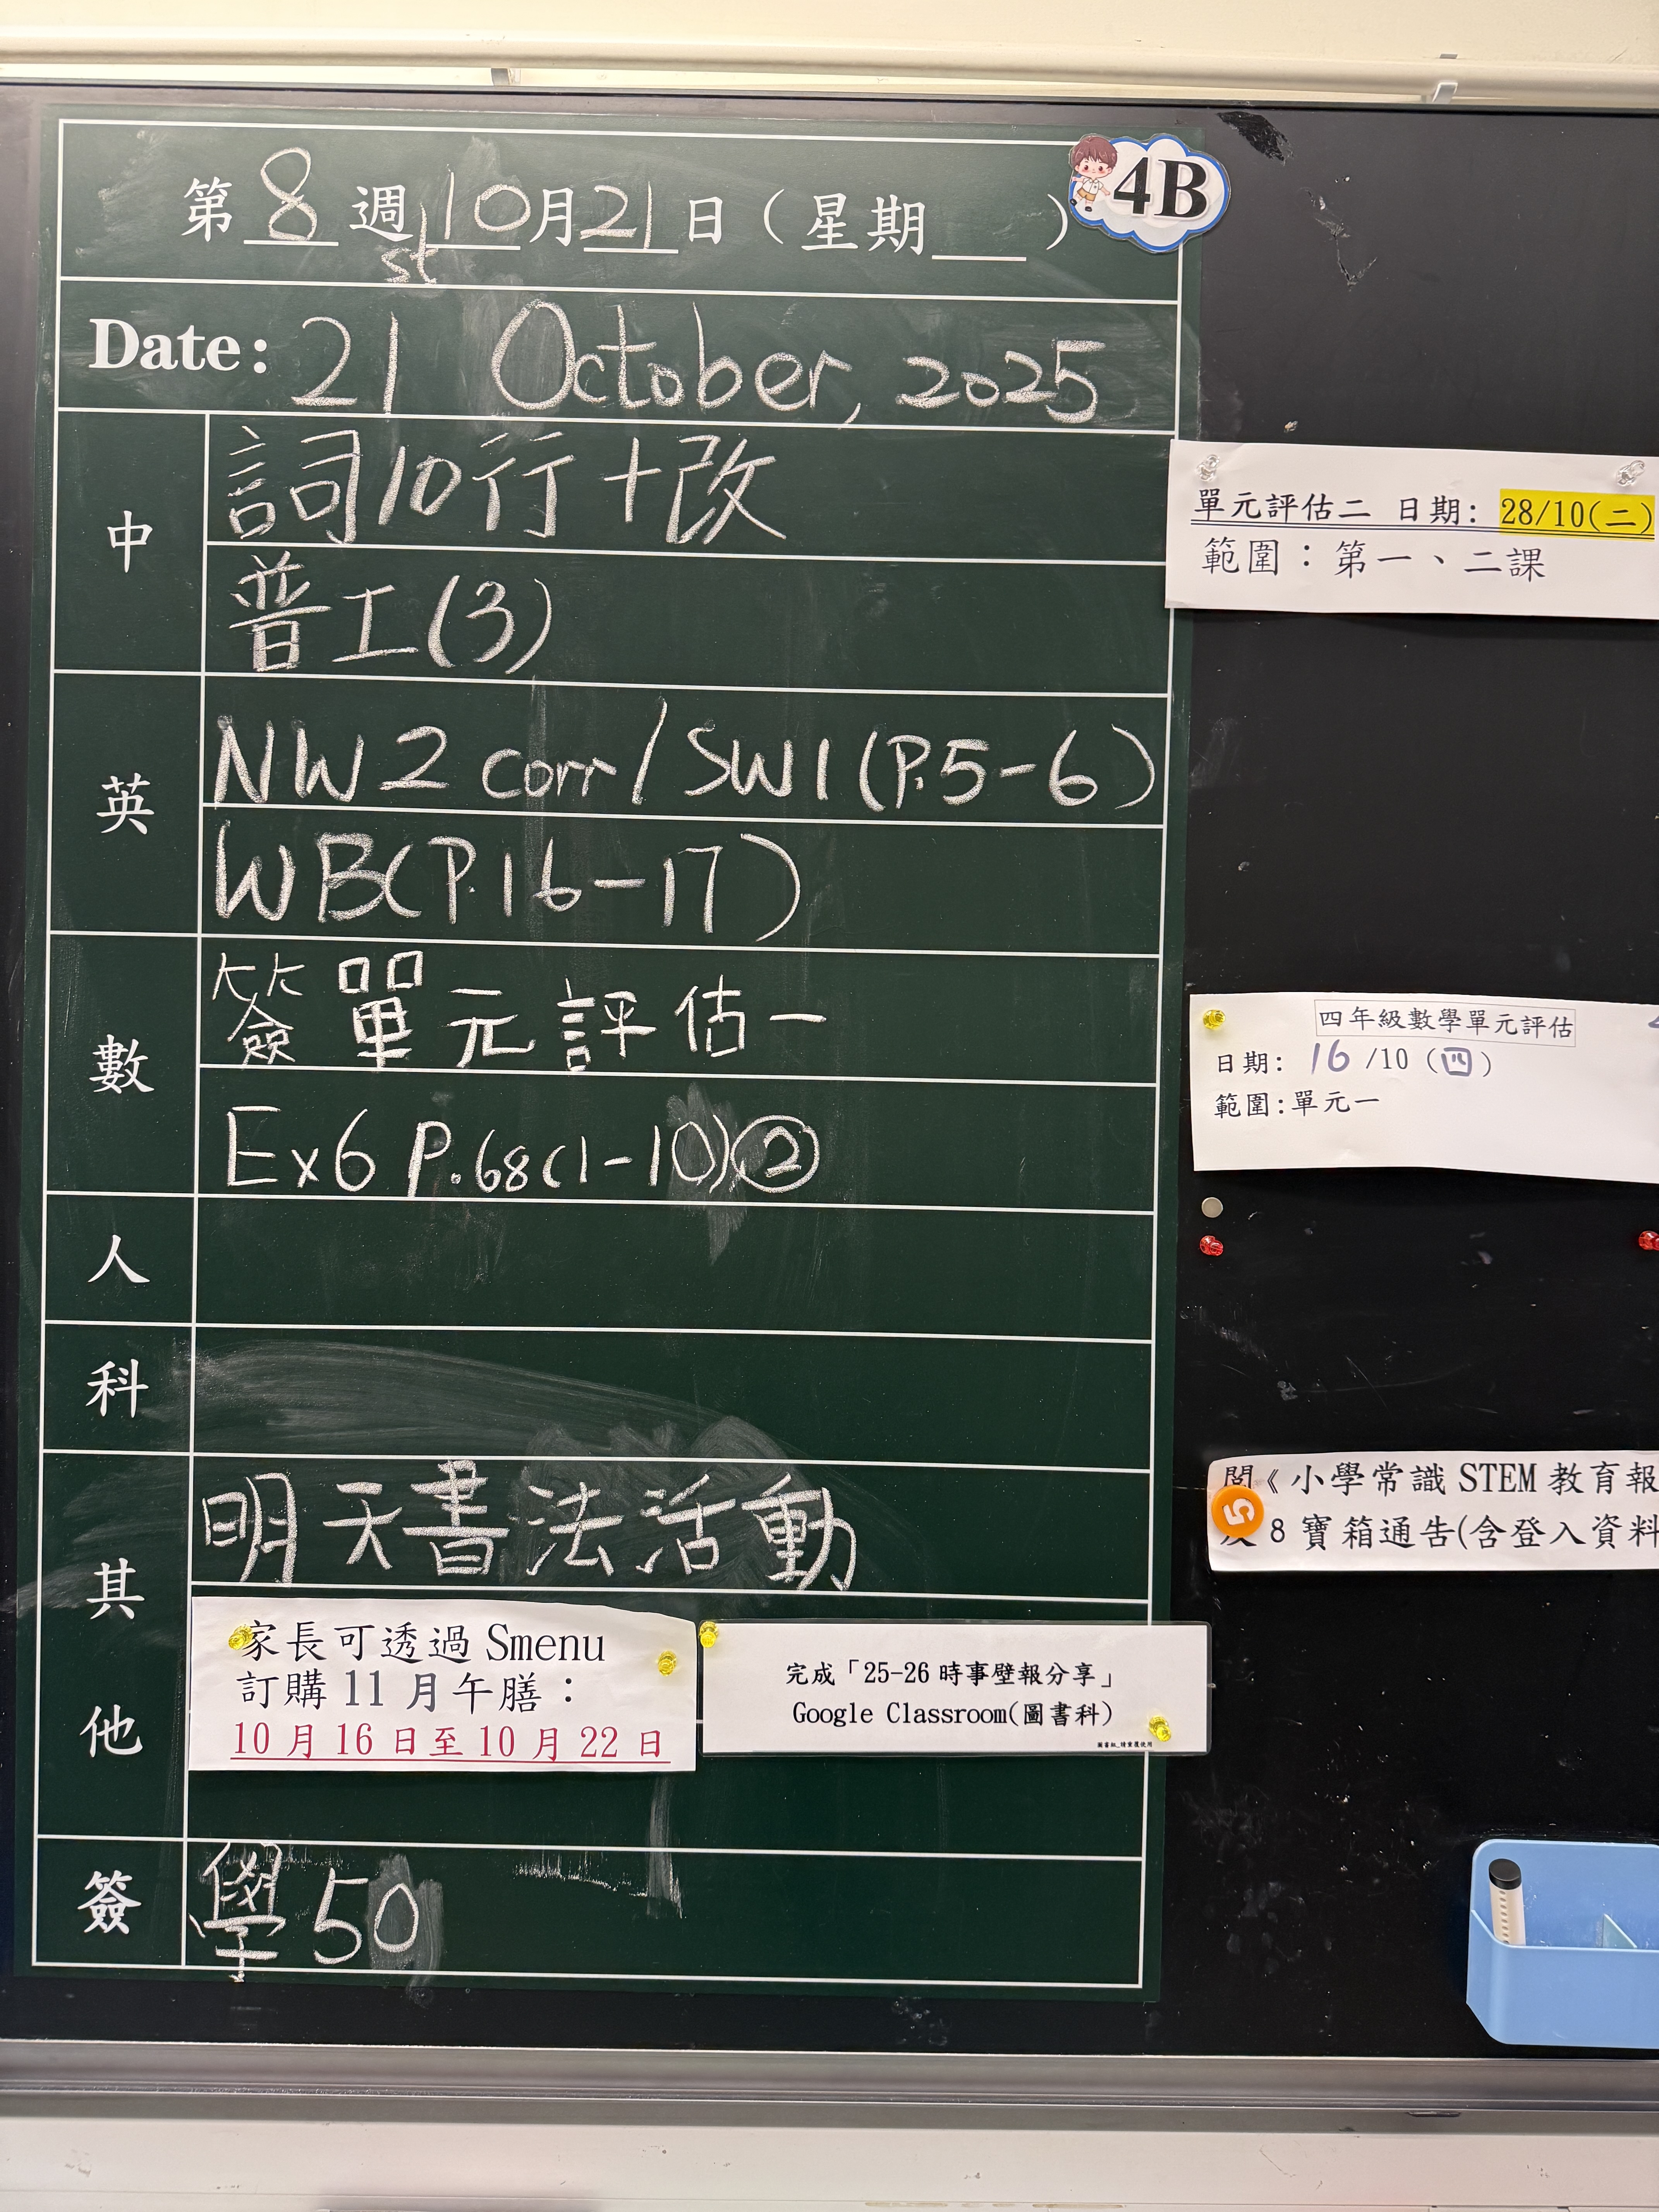 第8週10月21日（星期＿）
4B
Date: 21st October, 2025
中
詞10行+改
普工(3)
英
NW2 corr/SW1(P.5-6)
WB(P.16-17)
數
簽單元評估一
Ex6 P.68(1-10)②
人
科
其他
明天書法活動
家長可透過 Smenu
訂購 11 月午膳：
10 月 16 日至 10 月 22 日
完成「25-26 時事壁報分享」
Google Classroom(圖書科)
簽
學50
單元評估二 日期: 28/10(二)
範圍：第一、二課
四年級數學單元評估
日期: 16/10 (四)
範圍:單元一
《小學常識 STEM 教育報
5
8 寶箱通告(含登入資料